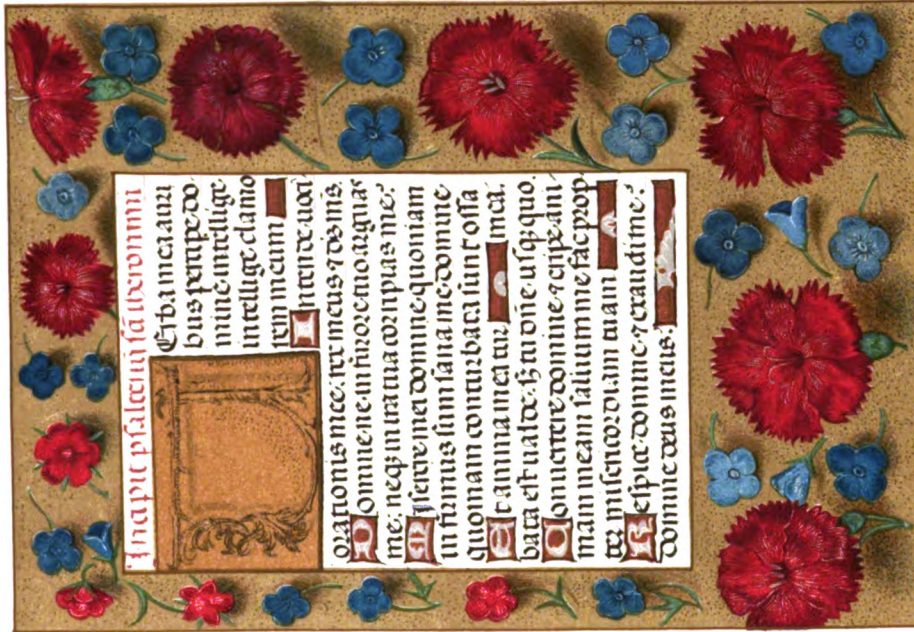 Incipit psalteriu sācti iheronimi
Erba mea auri
bus percipe do
mine intellige
intellige clamo
rem meum
Intende uoci
orationis mee: rex meus ⁊ de͛ ms.
Domine ne in furore tuo arguas
me: neqꝫ in ira tua corripias me:
Miserere mei domine quoniam
infirmus sum sana me domine
quoniam conturbata sunt ossa
Et anima mea tur mea.
bata est ualde. sꝫ tu dn̄e usqꝫquo.
Conuertere domine ⁊ eripe ani
mam meam saluum me fac prop
ter misericordiam tuam
Respice domine ⁊ exaudi me:
domine deus meus.